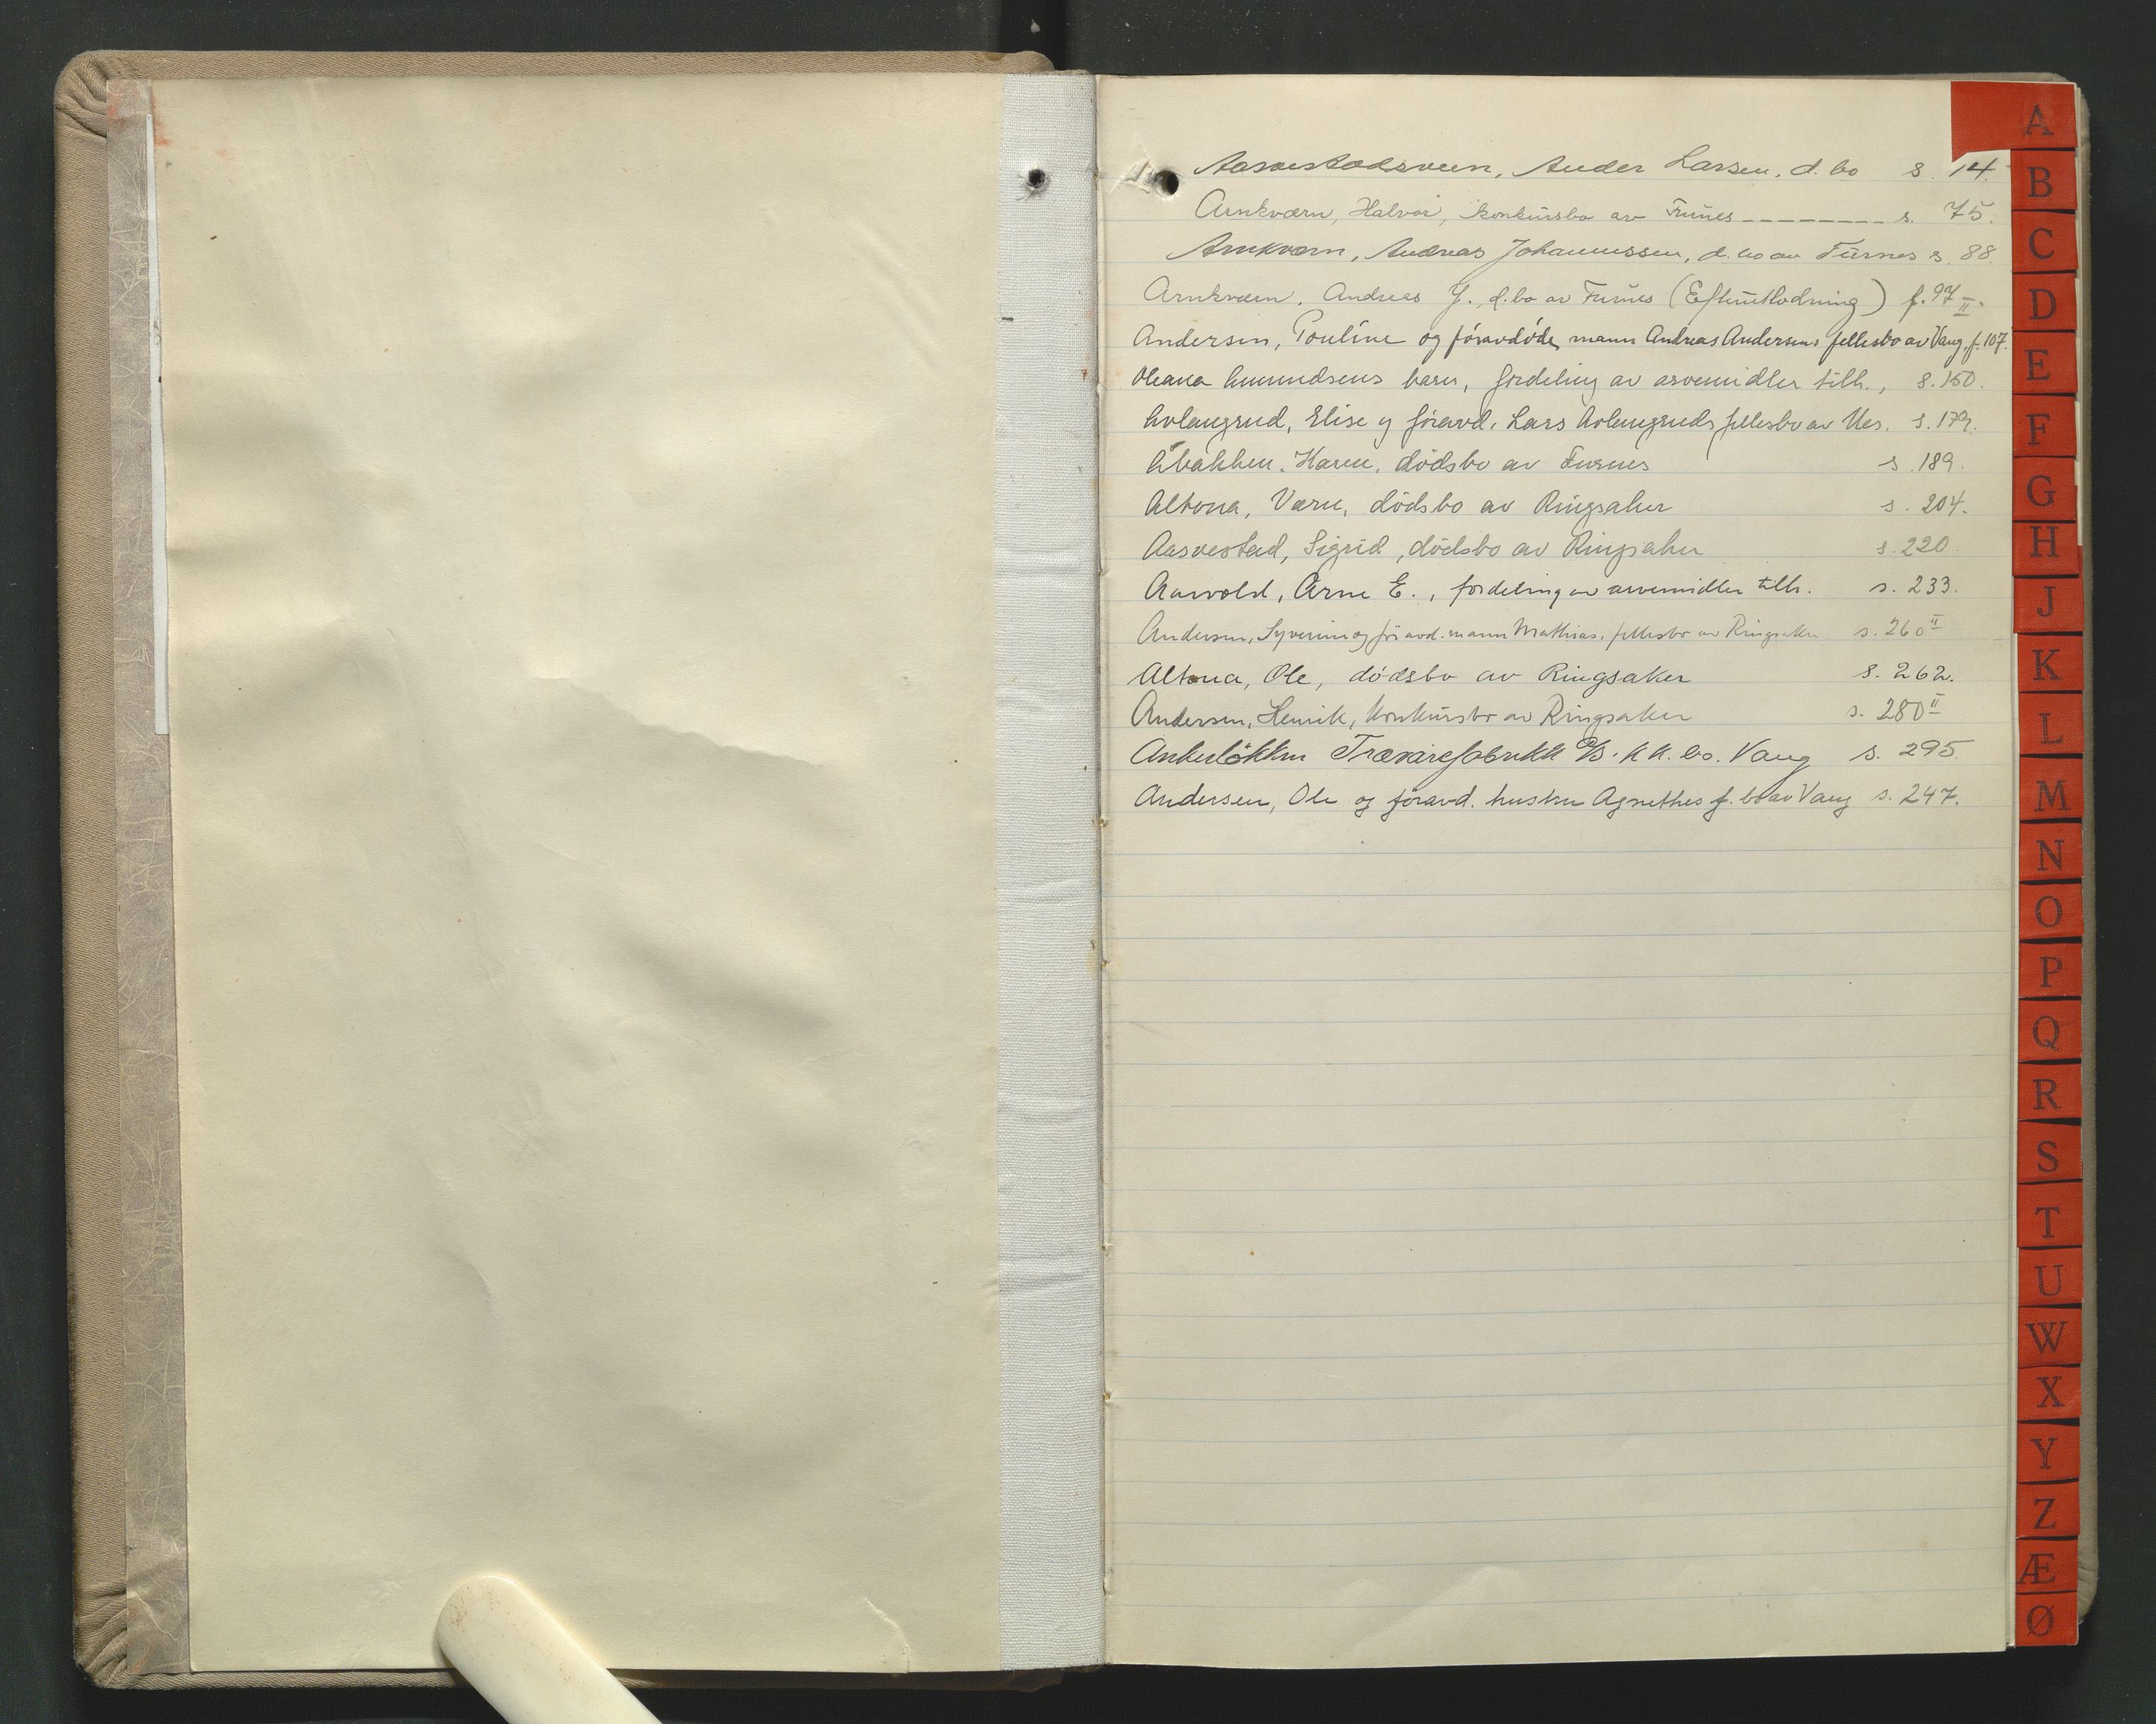 Aasvestadsveen, Ander Larsen, d. bo s. 14.
Arnkværn, Halvor, konkursbo av Furnes s. 75.
Arnkværn, Andreas Johannessen, d. bo av Furnes s. 88.
Arnkværn, Andreas J., d. bo av Furnes (Efterutlodning) f. 97 II.
Andersen, Pouline og foravdøde mann Andreas Andersens fellesbo av Vang, f. 107.
Oleana Amundsens barn, fordeling av arvemidler tilh., s. 150.
Avlangrud, Elise og foravd. Lars Avlangruds fellesbo av Nes. s. 179.
Åbakken, Karen, dødsbo av Furnes s. 189.
Altona, Værn, dødsbo av Ringsaker s. 204.
Aasvestad, Sigrid, dødsbo av Ringsaker s. 220.
Aarvold, Arne E., fordeling av arvemidler tilh. s. 233.
Andersen, Syverine og foravd. mann Mathias, fellesbo av Ringsaker s. 260 II
Altona, Ole, dødsbo av Ringsaker s. 262.
Andersen, Henrik, konkursbo av Ringsaker s. 280 II
Ankerløkken Trævarefabrikk A/S. k.k. bo. Vang s. 295.
Andersen, Ole og foravd. hustru Agnethes f. bo av Vang s. 247.
A
B
C
D
E
F
G
H
J
K
L
M
N
O
P
Q
R
S
T
U
W
X
Y
Z
Æ
Ø